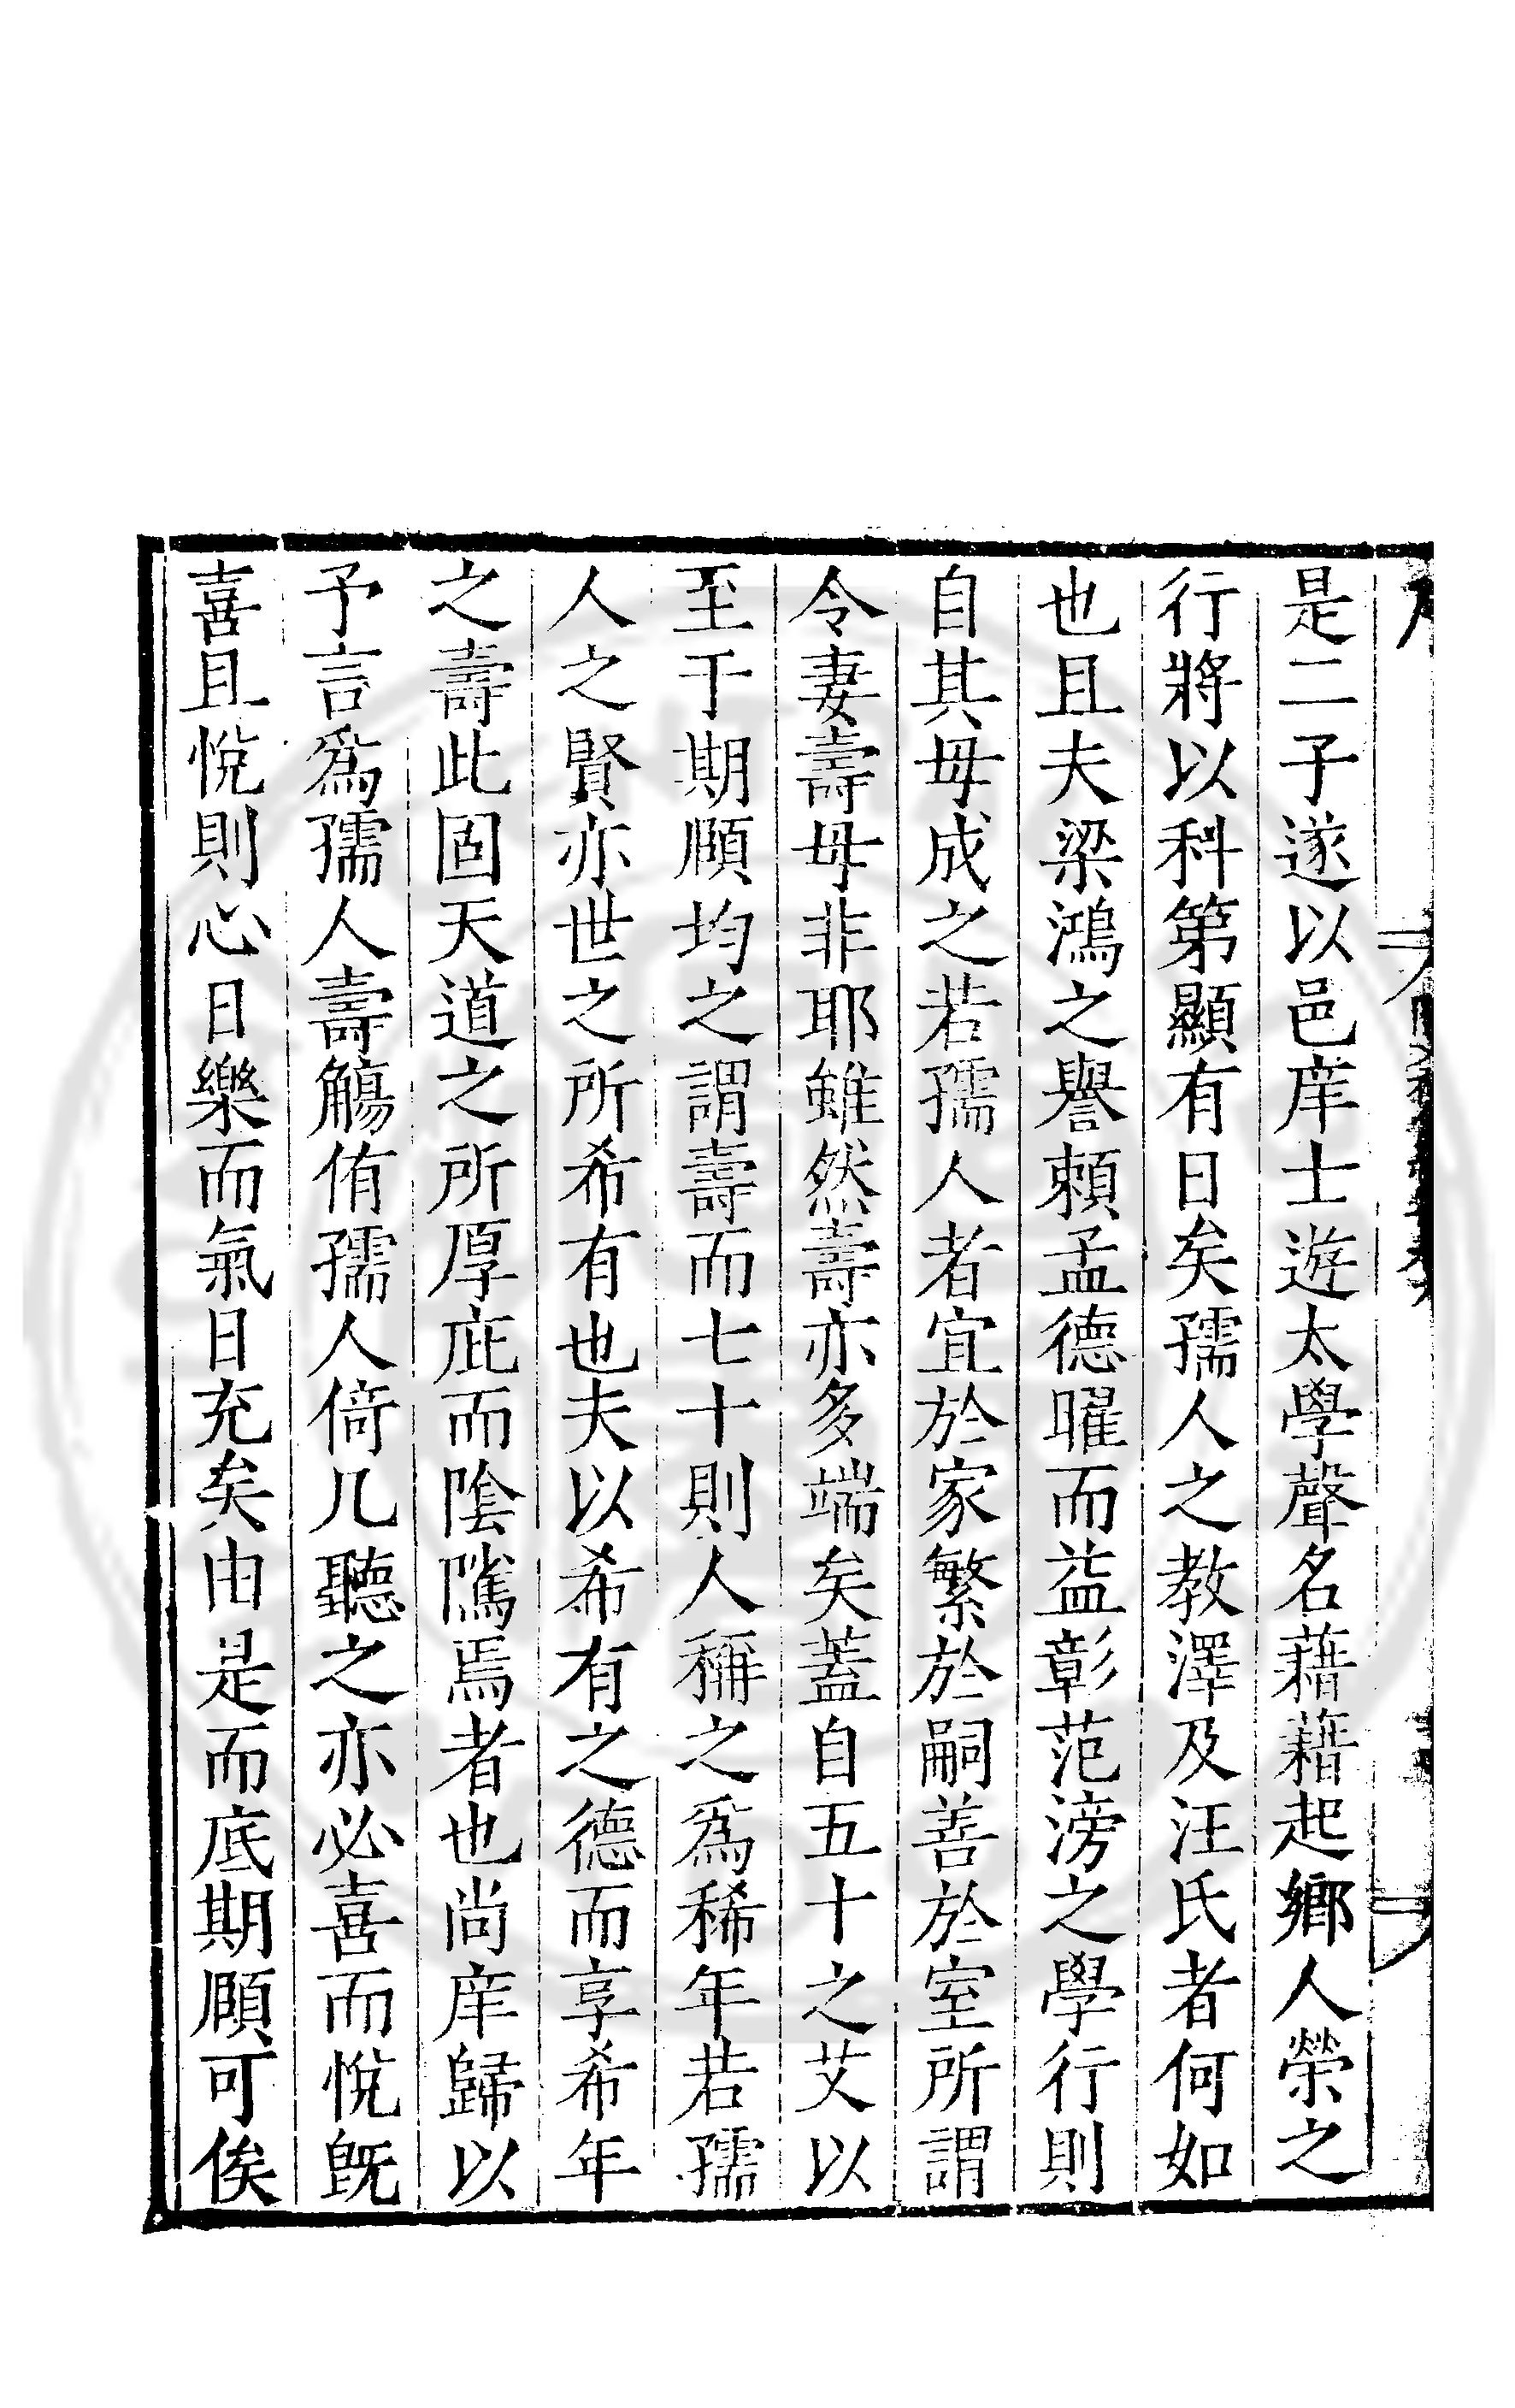 是二子遂以邑庠士遊太學聲名藉藉起鄉人榮之
行將以科第顯有日矣孺人之教澤及汪氏者何如
也且夫梁鴻之譽頼孟德曜而益彰范滂之學行則
自其母成之若孺人者宜於家繁於嗣善於室所謂
令妻壽母非耶雖然壽亦多端矣蓋自五十之艾以
至于期頥均之謂壽而七十則人稱之爲稀年若孺
人之賢亦世之所希有也夫以希有之德而享希年
之壽此固天道之所厚庇而陰隲焉者也尚庠歸以
予言爲孺人壽觴侑孺人倚几聽之亦必喜而悅旣
喜且悅則心日樂而氣日充矣由是而底期頥可俟